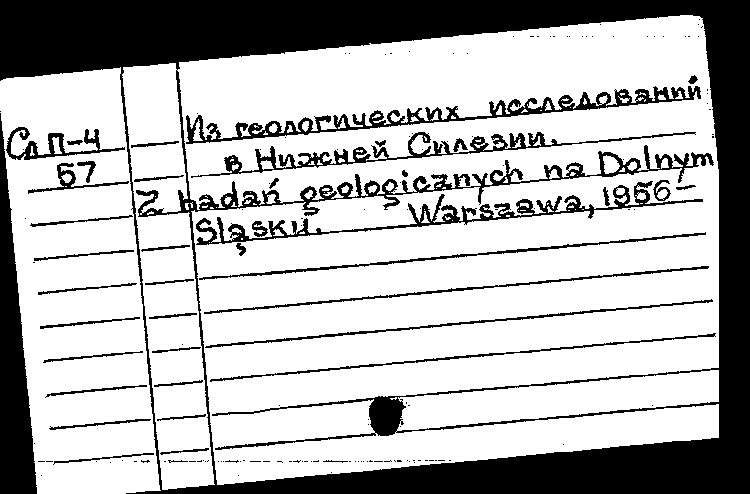 Сл П-4
57
Из геологических исследований
в Нижней Силезии.
Z badań geologicznych na Dolnym
Sląsku. Warszawa, 1956-